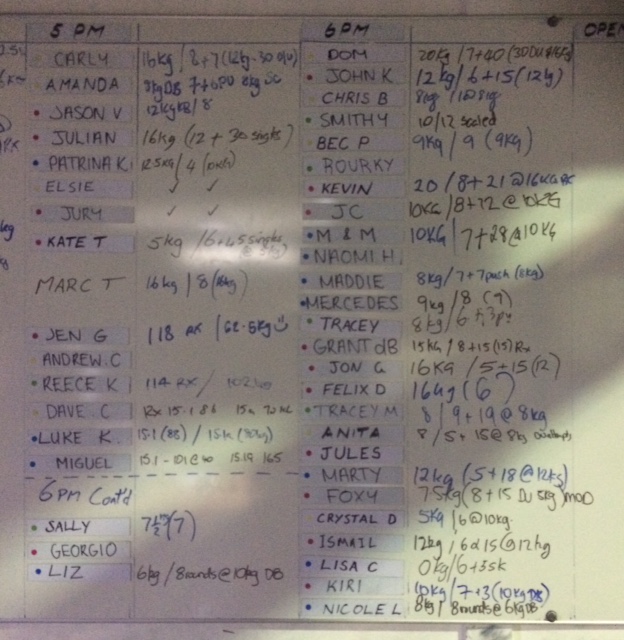 5 PM
CARLY 16kg / 8+7 (12kg-30
AMANDA 8kgDB 7+6PU 8kg
JASON V 12kgKB / 8
JULIAN 16kg (12 + 30 singles)
PATRINA K 12.5kg / 4 (10kg)
ELSIE ✓ ✓
JURY ✓ ✓
KATE T 5kg / 6+45 singles
MARC T 16kg / 8
JEN G 118 RX / 62-5kg
ANDREW.C
REECE K 114 RX /
DAVE C Rx 15.1 86
LUKE K 15.1 (88) /
MIGUEL 15.1 - 101@40 15.1a 165
6PM Cont'd
SALLY 7½ (7)
GEORGIO
LIZ 6kg / 8rounds@10kg DB
6PM
DOM 20kg / 7+40
JOHN K 12kg / 6+15 (12kg)
CHRIS B 8kg /
SMITHY 10/12 scaled
BEC P 9kg / 9 (9kg)
ROURKY
KEVIN 20 / 8+21 @16KG
JC 10KG / 8+22 @ 10KG
M & M 10KG / 7+28@10KG
NAOMI H
MADDIE 8kg / 7+7push (8kg)
MERCEDES 9kg / 8 (9)
TRACEY 8kg / 6
GRANT dB 15kg / 8+15(15)Rx
JON G 16Kg / 5+15(12)
FELIX D 16kg (6)
TRACEY M 8 / 9+19 @ 8kg
ANITA 8 / 5+ 15@8kg
JULES
MARTY 12kg (5+18@12kg)
FOXY 7.5kg (8+15 DU 5kg) mod
CRYSTAL D 5kg / 6@10kg
ISMAIL 12kg / 6 15@12kg
LISA C 0kg / 6+35k
KIRI 10kg / 7+3 (10kg DB)
NICOLE L 8kg / 8rounds@6kgDB
OPEN